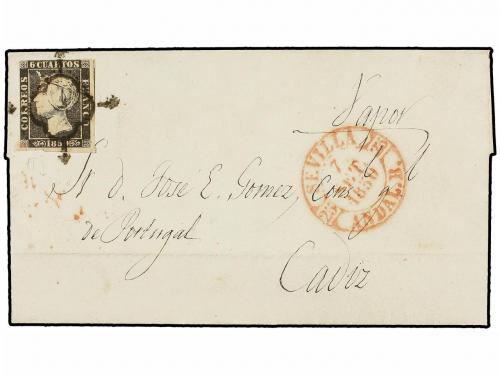 6 CUARTOS
CORREOS
FRANCO
185
Vapor
SEVILLA
7
185
ANDAL. B.
Sr. D. Jose E. Gomez, Cons
de Portugal
Cadiz